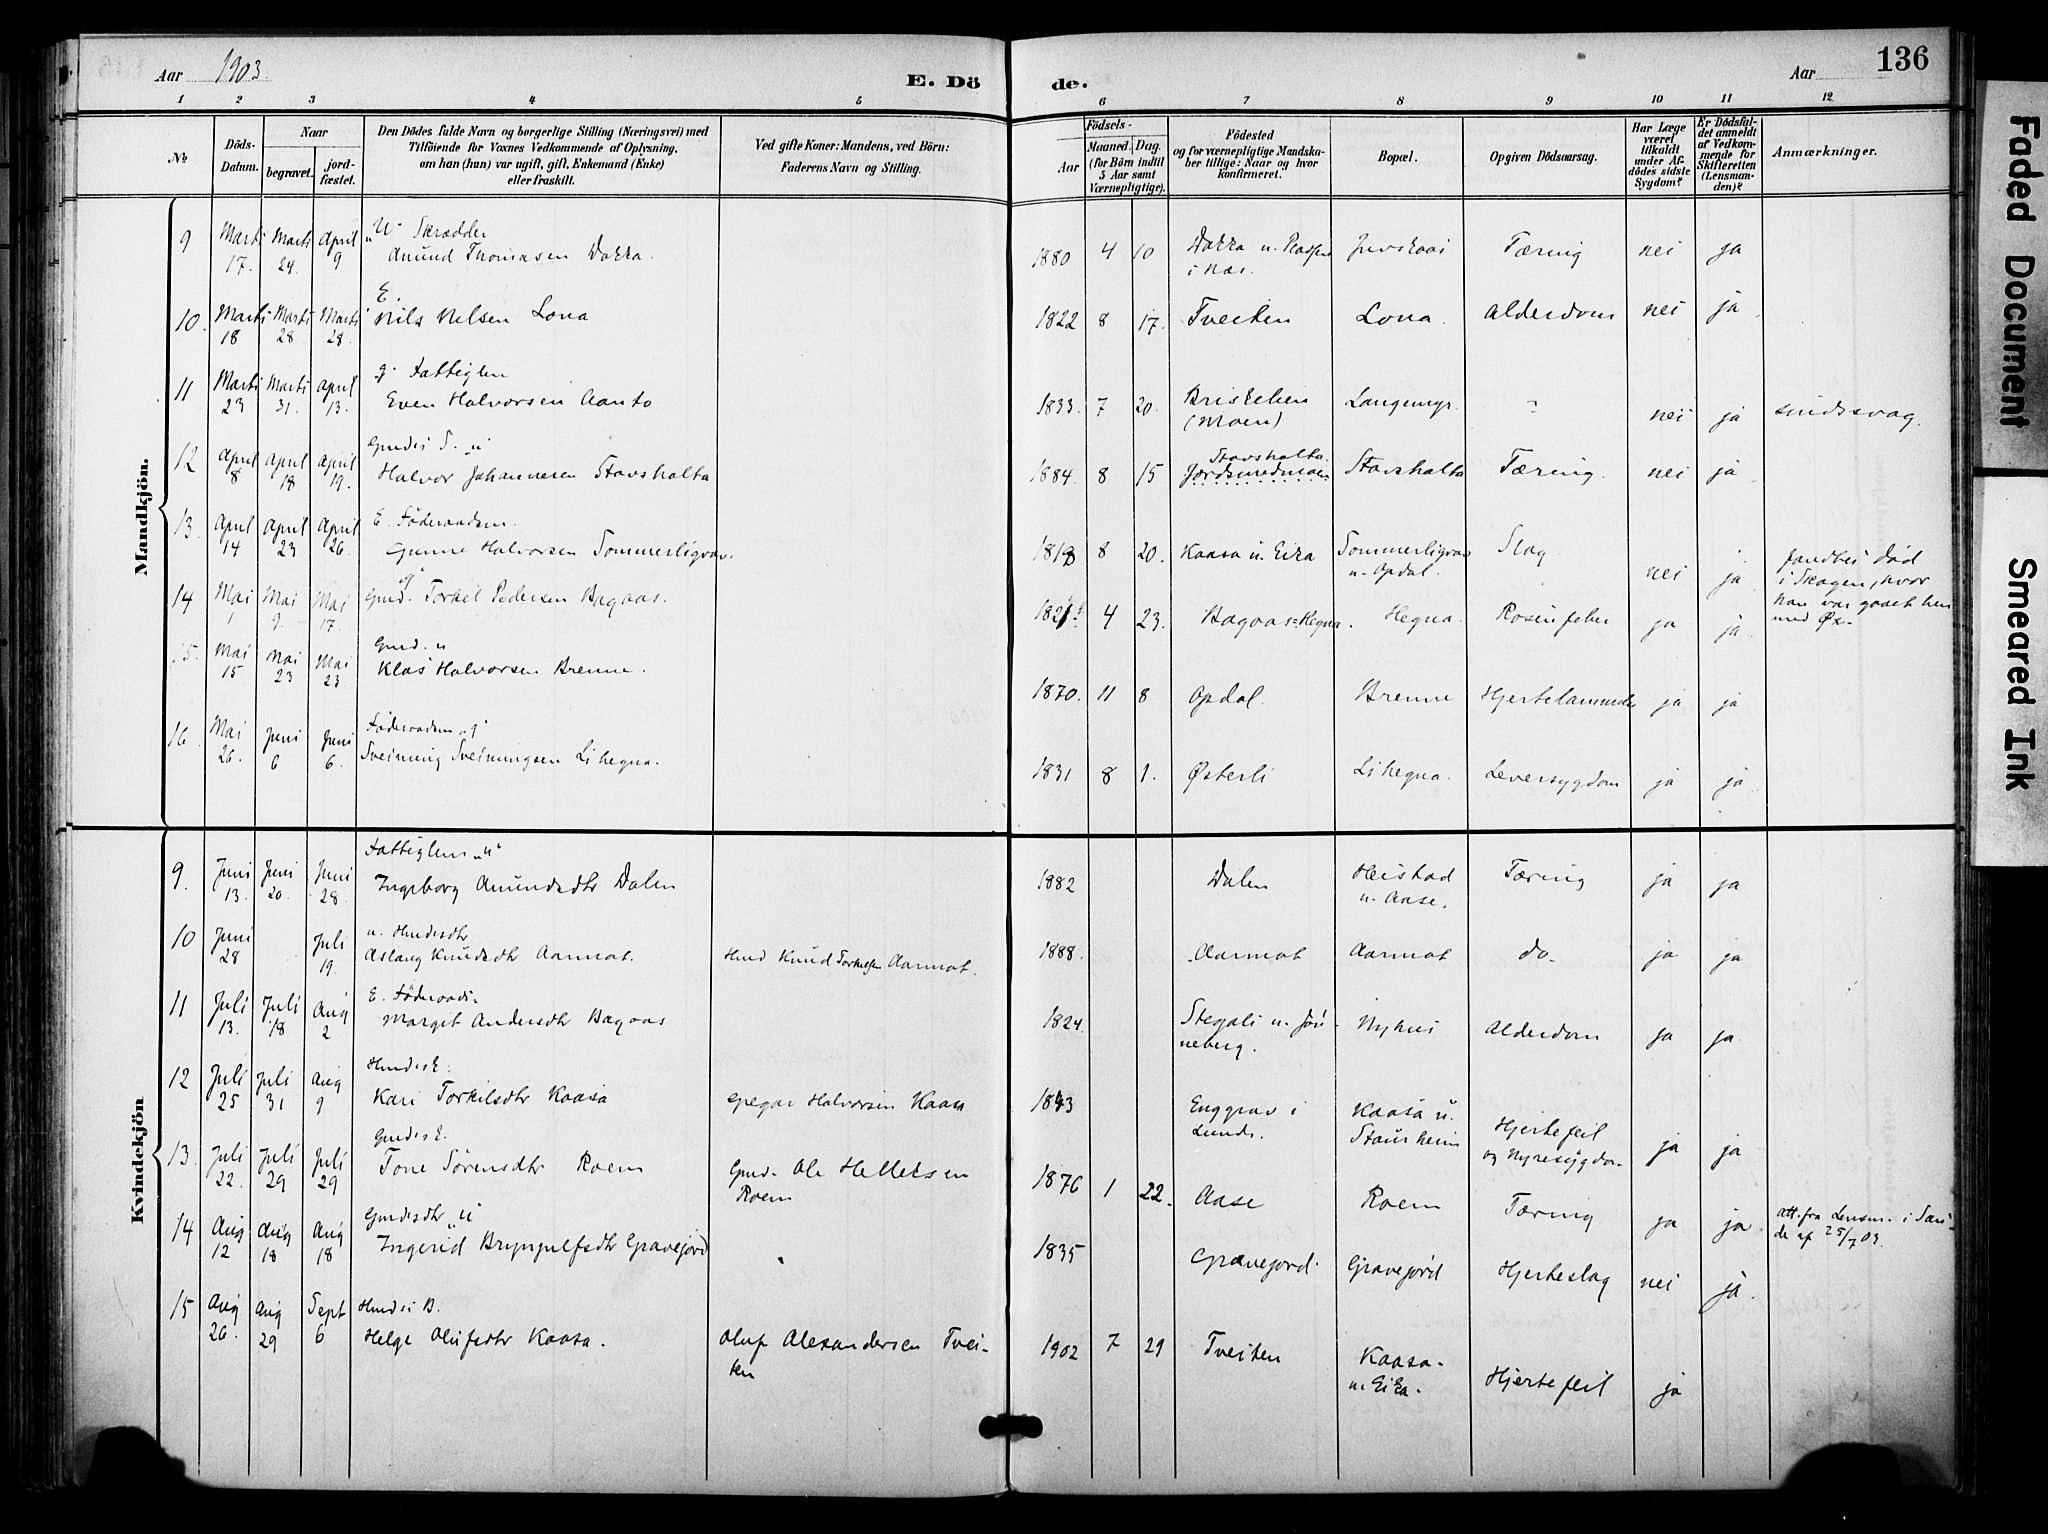 Aar 1903.
E. Dö
de.
Aar
136
1 2 3 4 5 6 7 8 9 10 11 12
No
Döds-Datum.
Naar
begravet.
jord-fæstet.
Den Dödes fulde Navn og borgerlige Stilling (Næringsvei) med
Tilföiende for Voxnes Vedkommende af Oplysning,
om han (hun) var ugift, gift, Enkemand (Enke)
eller fraskilt.
Ved gifte Koner: Mandens, ved Börn:
Faderens Navn og Stilling.
Födsels-
Aar
Maaned. Dag.
(for Börn indtil
5 Aar samt
Værnepligtige).
Födested
og for værnepligtige Mandska-
ber tillige: Naar og hvor
konfirmeret.
Bopæl.
Opgiven Dödsaarsag.
Har Læge
været
tilkaldt
under Af-
dödes sidste
Sygdom?
Er Dödsfal-
det anmeldt
af Vedkom-
mende for
Skifteretten
(Lensman-
den)?
Anmærkninger.
Mandkjön.
9 Marti 17. Marti 24. April 9 "U" Skrædder
Anund Thomasen Dakka. 1880 4 10 Dakka u.
i Næs. Tæring nei ja
10. Marti 18 Marti 28. Marti 28. E.
Nils Nilsen Lona 1822 8 17. Tveiten Lona. Alderdom nei ja
11 Marti 23 Marti 31. April 13. g. Fattiglem
Even Halvorsen Aanto 1833. 7 20. Briskelien
(Moen) Langemyr. " nei ja sindssvag.
12 April 8 April 18 April 19. Gmds S. "u"
Halvor Johannesen Stavshalta 1884. 8 15 Stavshalta.
Jordsmedmoen Stavshalta Tæring. nei ja
13. April 14 April 23 April 26. E. Föderaadsm.
Gunne Halvorsen Sommerligrav. 8 20. Kaasa u. Eika Sommerligrav
u. Opdal. Slag nei ja. fandtes död
i Skogen, hvor
han var gaaet hen
med Øx.
14 Mai 1 Mai 9. Mai 17. "g"
Gmd. Torkel Pedersen Bagaas. 4 23. Bagaas-Hegna. Hegna. Rosenfeber ja ja.
15. Mai 15 Mai 23 Mai 23. Gmd. u
Klas Halvorsen Brenne. 1870. 11 8 Opdal. Brenne Hjertelammelse ja ja
16. Mai 26. Juni 6 Juni 6. Föderaadsm "g"
Sveinung Sveinungsen Lihegna. 1831 8 1. Østerli Lihegna. Leversygdom ja ja.
Kvindekjön
9. Juni 13. Juni 20. Juni 28. Fattiglem "u"
Ingeborg Anundsdtr Dalen 1882 Dalen Heistad
u. Aase. Tæring ja ja
10 Juni 28 Juli 19. u. Hmdsdtr
Aslaug Knudsdtr Aamot. Hmd Knud Torkelsen Aamot. 1888. Aamot Aamot do. ja ja
11 Juli 13. Juli 18 Aug 2 E. Föderaads.
Margit Andersdtr Bagaas 1824. Stegali u. Jön-
neberg. Nyhus Alderdom ja ja.
12 Juli 25 Juli 31 Aug 9 Hmds E.
Kari Torkilsdtr Kaasa Gregar Halvorsen Kaasa 1843 Enggrav i
Lunde. Kaasa u.
Staurheim Hjertefeil
og Nyresygdom ja ja
13. Juli 22. Juli 29 Juli 29 Gmds E.
Tone Sørensdtr Roem Gmd. Ole Helleksen
Roem 1876 1 22. Aase Roem Tæring ja ja. att. fra Lensm. i Sau-
de af 25/7 03.
14 Aug 12 Aug 18 Aug 18 Gmdsdtr "u"
Ingerid Brynjulfsdtr Gravejord 1835 Gravejord. Gravejord Hjerteslag nei ja.
15 Aug 26. Aug 29 Sept 6 Hmds B.
Helge Olufsdtr Kaasa. Oluf Alexandersen Tvei-
ten 1902 7 29 Tveiten Kaasa.
u. Eika. Hjertefeil ja
Faded Document
Smeared Ink